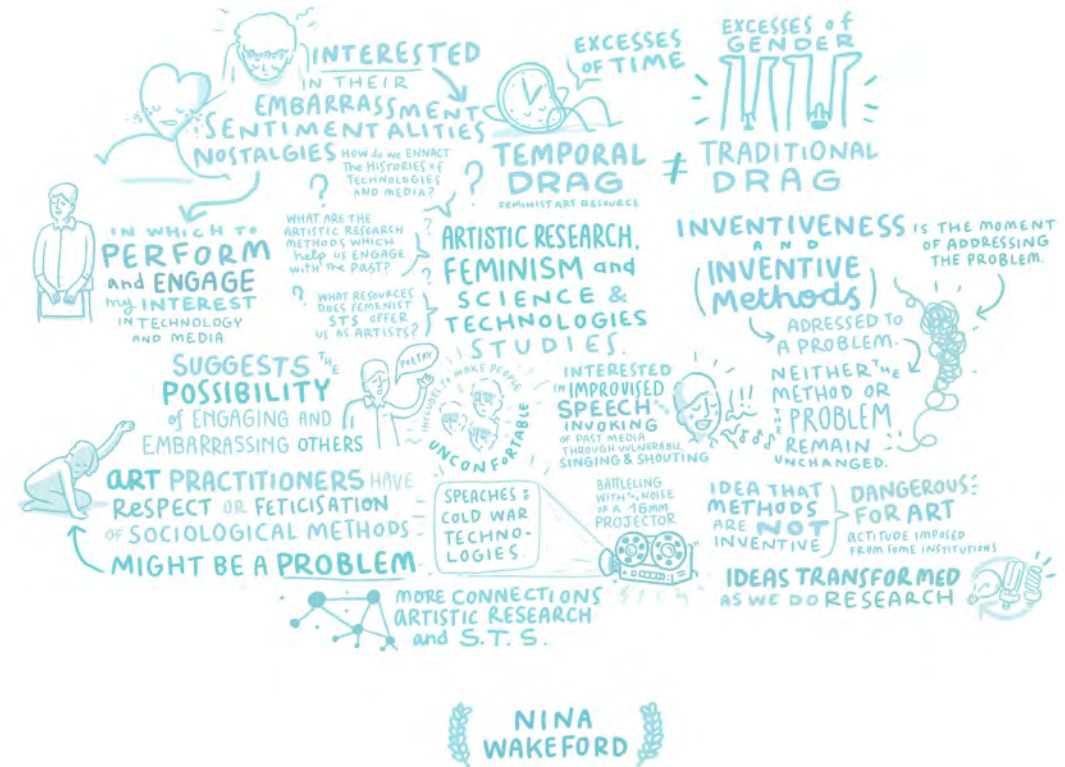 INTERESTED
IN THEIR
EMBARRASSMENT
SENTIMENTALITIES
NOSTALGIES
HOW do WE ENNACT
The HISTORIES of
TECHNOLOGIES
AND MEDIA?
?
?
EXCESSES
OF TIME
TEMPORAL
DRAG
FEMINIST ART RESOURCE
≠
EXCESSES of
GENDER
TRADITIONAL
DRAG
IN WHICH TO
PERFORM
and ENGAGE
my INTEREST
IN TECHNOLOGY
AND MEDIA
WHAT ARE THE
ARTISTIC RESEARCH
METHODS WHICH
help US ENGAGE
with The PAST?
?
?
?
WHAT RESOURCES
DOES FEMENIST
STS OFFER
US AS ARTISTS?
ARTISTIC RESEARCH,
FEMINISM and
SCIENCE &
TECHNOLOGIES
STUDIES.
INVENTIVENESS
AND
(INVENTIVE
Methods)
IS THE MOMENT
OF ADDRESSING
THE PROBLEM.
ADRESSED TO
A PROBLEM.
NEITHER THE
METHOD OR
THE PROBLEM
REMAIN
UNCHANGED.
SUGGESTS THE
POSSIBILITY
of ENGAGING AND
EMBARRASSING OTHERS
POETRY
INCLUDES TO MAKE PEOPLE
UNCONFORTABLE
INTERESTED
in IMPROVISED
SPEECH
INVOKING
OF PAST MEDIA
THROUGH VULNERABLE
SINGING & SHOUTING
!!!
ART PRACTITIONERS HAVE
RESPECT OR FETICISATION
OF SOCIOLOGICAL METHODS
MIGHT BE A PROBLEM
SPEACHES:
COLD WAR
TECHNO-
LOGIES.
BATTLELING
WITH The NOISE
OF A 16mm
PROJECTOR
IDEA THAT
METHODS
ARE NOT
INVENTIVE
DANGEROUS
FOR ART
ACTITUDE IMPOSED
FROM SOME INSTITUTIONS
IDEAS TRANSFORMED
AS WE DO RESEARCH
MORE CONNECTIONS
ARTISTIC RESEARCH
and S.T.S.
NINA
WAKEFORD